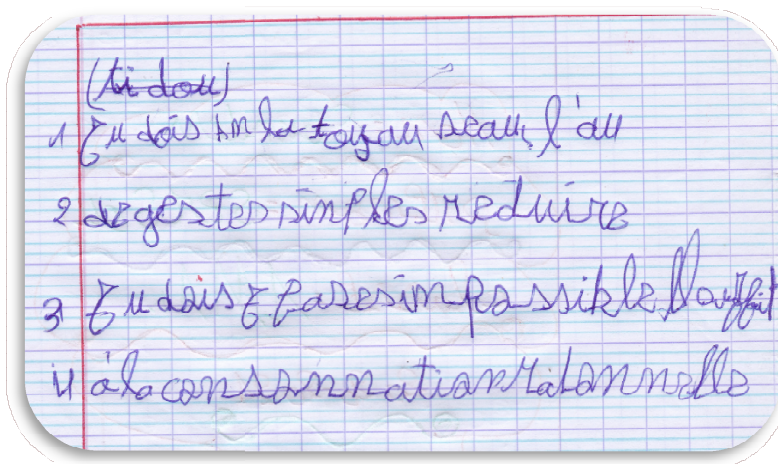 (ti dou)
1 Tu dois im la toyau seau, l'au
2 degestes simples reduire
3 Tu dais Efaresimpassible
4 à la consonnation ratonnelle